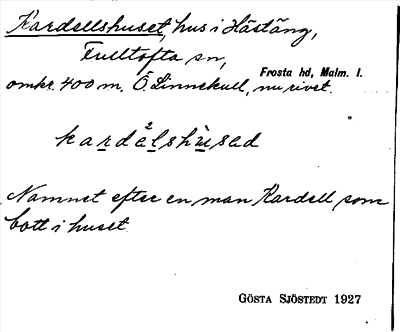 Kardellshuset, hus i Hästäng,
Fulltofta sn,
Frosta hd, Malm. l.
omkr. 400 m. Ö. Linnekull, nu rivet.
Namnet efter en man Kardell som
bott i huset
GÖSTA SJÖSTEDT 1927